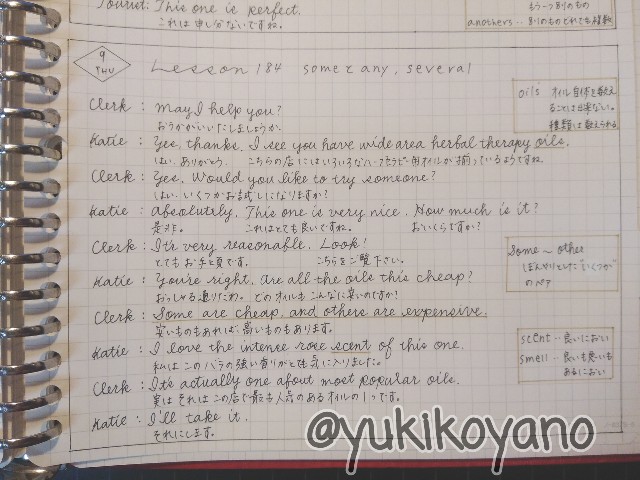 Tourist: This one is perfect.
これは申し分ないですね。
もう一つ別のもの
anothers‥別のものどれでも複数
9
THU
Lesson 184 some と any, several
Clerk : May I help you?
おうかがいいたしましょうか。
oils オイル自体を数え
ることは出来ない。
種類は数えられる
Katie : Yes, thanks, I see you have wide area herbal therapy oils.
はい、ありがとう。 こちらの店にはいろいろなハーブセラピー用オイルが揃っているようですね。
Clerk : Yes, Would you like to try someone?
はい、いくつかお試しになりますか?
Katie : Absolutely. This one is very nice. How much is it?
是非。 これはとても良いですね。 おいくらですか?
Clerk : It's very reasonable. Look!
とてもお手頃です。 こちらをご覧下さい。
some ~ other
ぼんやりとした"いくつか"
のペア
Katie : You're right, are all the oils this cheap?
おっしゃる通りだわ。どのオイルもこんなに安いのですか?
Clerk : Some are cheap, and others are expensive.
安いものもあれば、高いものもあります。
Katie : I love the intense rose scent of this one.
私はこのバラの強い香りがとても気に入りました。
scent‥良いにおい
smell‥良いも悪いも
あるにおい
Clerk : It's actually one about most popular oils.
実はそれはこの店で最も人気のあるオイルの1つです。
Katie : I'll take it.
それにします。
@yukikoyano